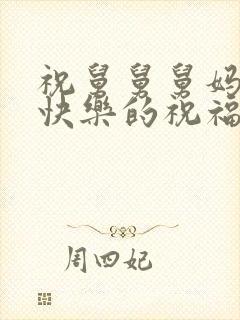 祝舅舅舅妈
快樂的祝福
周四妃